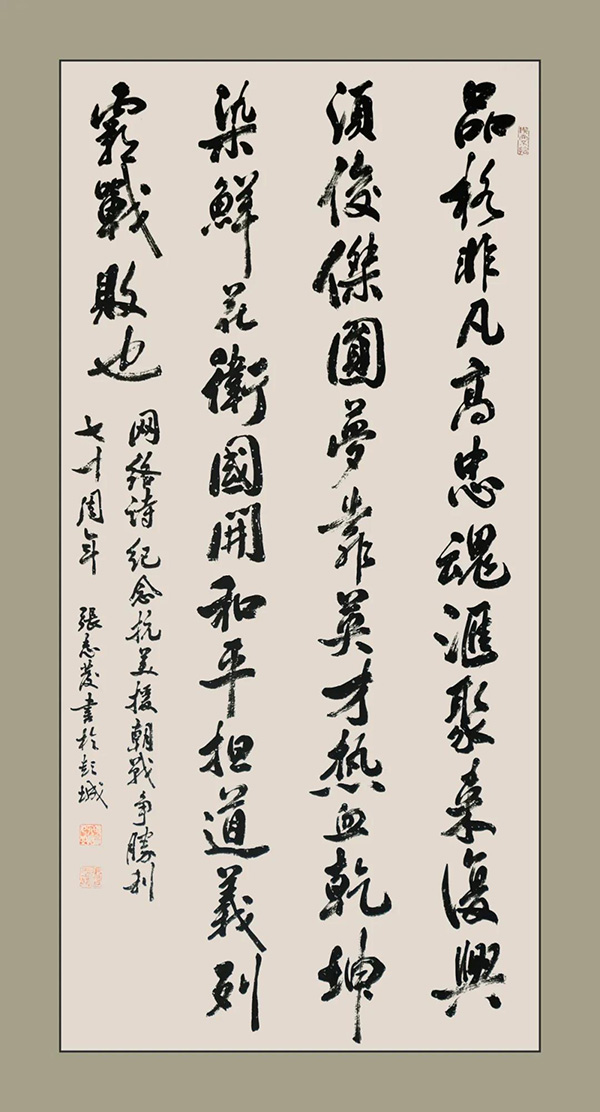 品格非凡高忠魂滙聚来復興
須俊傑圓夢靠英才热血乾坤
染鮮花衛國開和平担道義列
霸戰敗也
网络诗纪念抗美援朝战争勝利
七十周年 張志發書於彭城